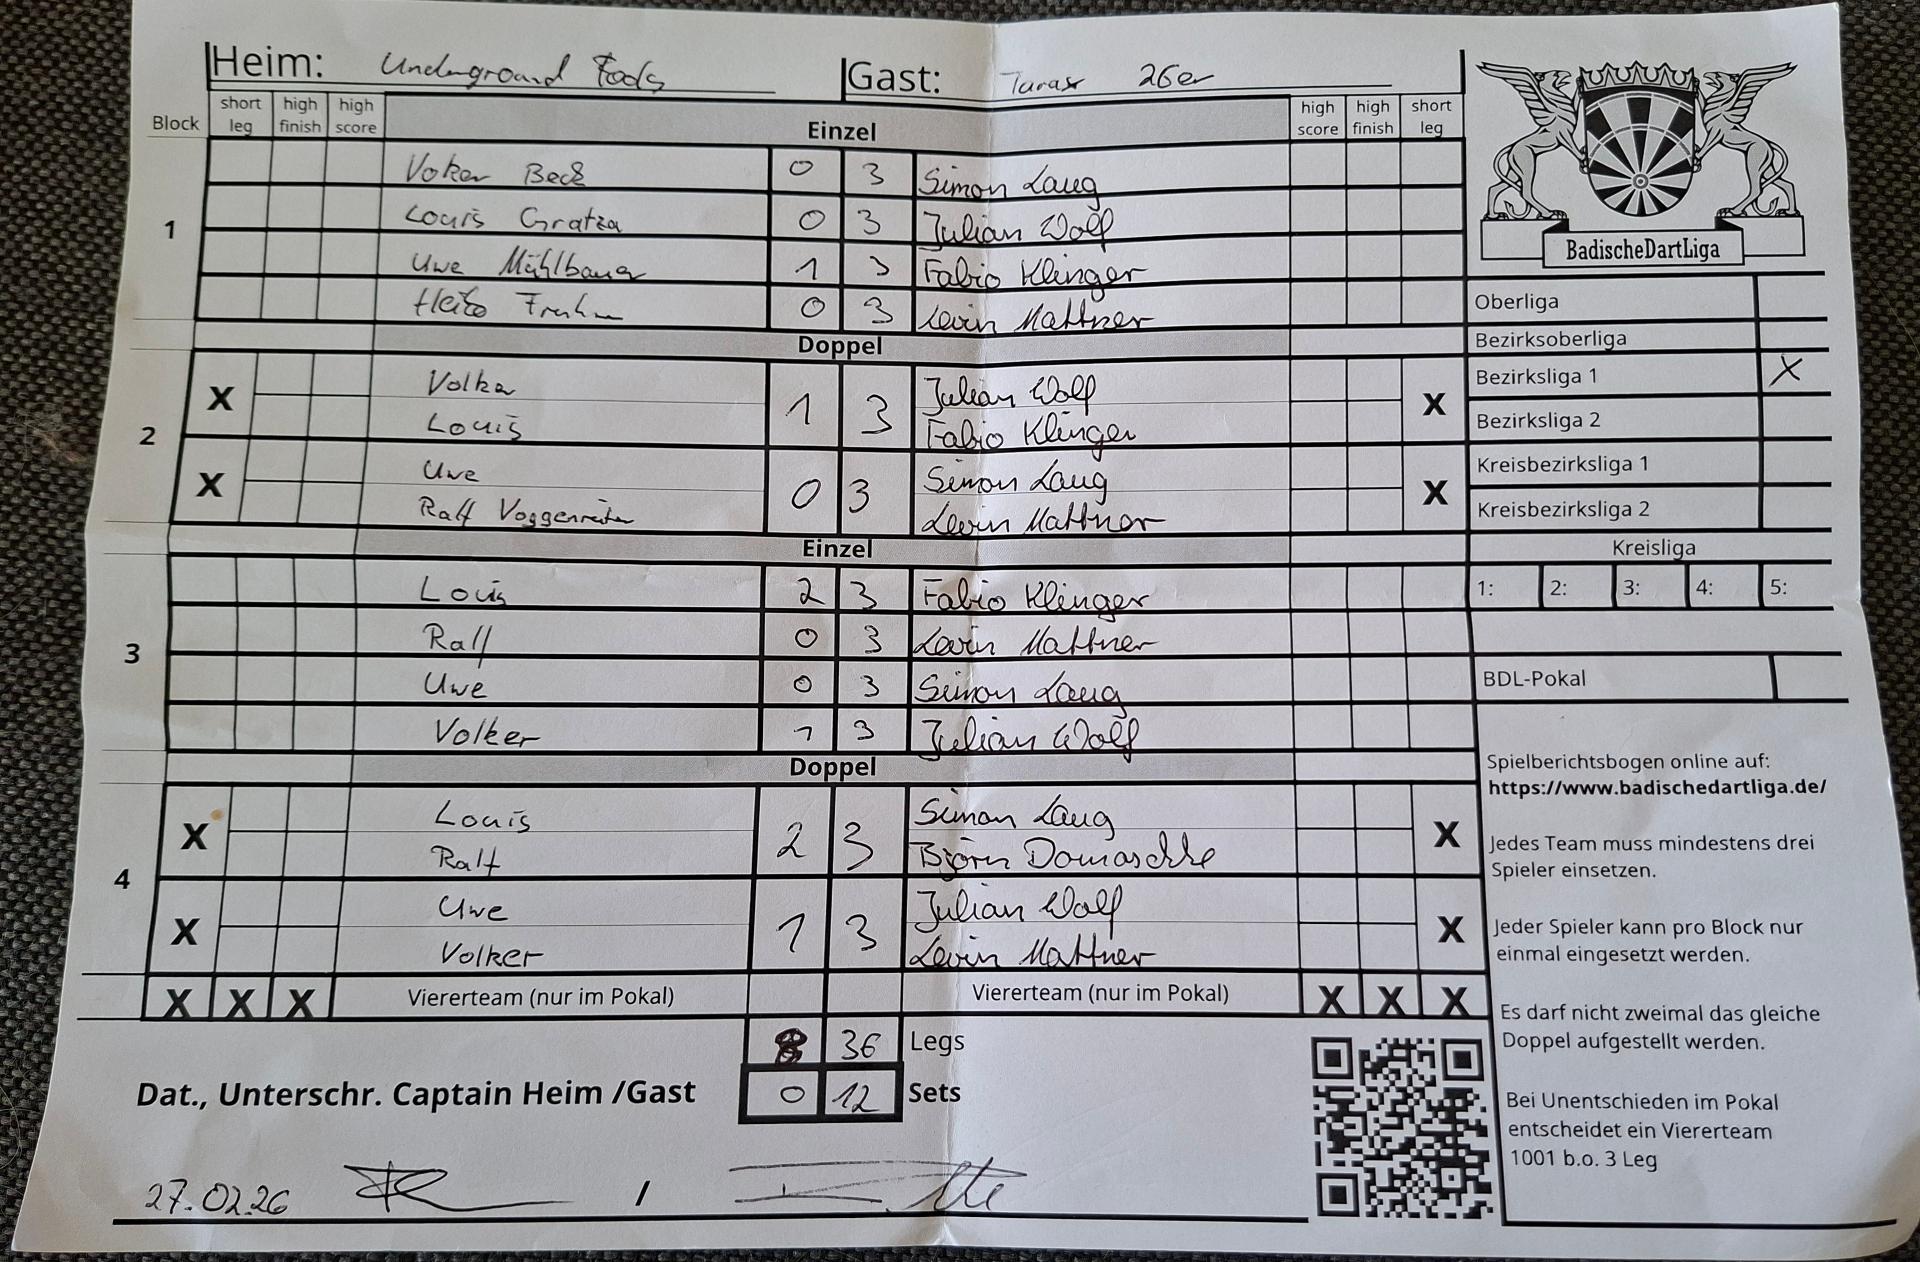 Heim: Underground Fools Gast: Taraxr 26er
Block short leg high finish high score Einzel high score high finish short leg
1
Voker Beck 0 3 Simon Laug
Louis Gratza 0 3 Julian Wolf
Uwe Mühlbauer 1 3 Fabio Klinger
Heiko 0 3 Levin Mattner
Doppel
2
X Volker 1 3 Julian Wolf X
Louis Fabio Klinger
X Uwe 0 3 Simon Laug X
Ralf Voggenreiter Levin Mattner
Einzel
3
Louis 2 3 Fabio Klinger
Ralf 0 3 Levin Mattner
Uwe 0 3 Simon Laug
Volker 1 3 Julian Wolf
Doppel
4
X Louis 2 3 Simon Laug X
Ralf Björn Domaschke
X Uwe 1 3 Julian Wolf X
Volker Levin Mattner
X X X Viererteam (nur im Pokal) Viererteam (nur im Pokal) X X X
8 36 Legs
Dat., Unterschr. Captain Heim /Gast 0 12 Sets
27.02.26 /
BadischeDartLiga
Oberliga
Bezirksoberliga
Bezirksliga 1 X
Bezirksliga 2
Kreisbezirksliga 1
Kreisbezirksliga 2
Kreisliga
1: 2: 3: 4: 5:
BDL-Pokal
Spielberichtsbogen online auf:
https://www.badischedartliga.de/
Jedes Team muss mindestens drei
Spieler einsetzen.
Jeder Spieler kann pro Block nur
einmal eingesetzt werden.
Es darf nicht zweimal das gleiche
Doppel aufgestellt werden.
Bei Unentschieden im Pokal
entscheidet ein Viererteam
1001 b.o. 3 Leg